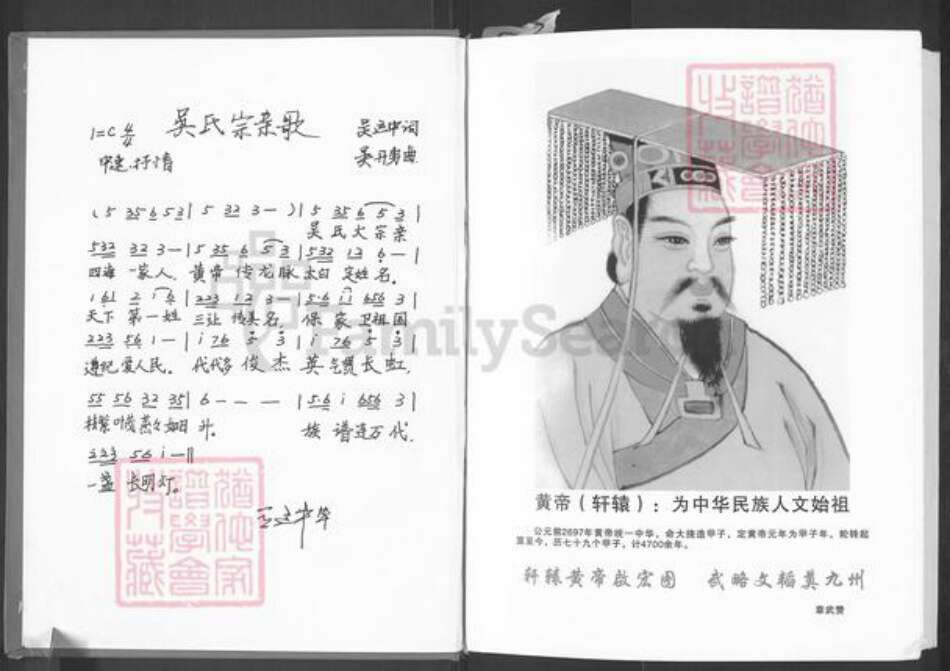 吴氏宗亲歌
1=C 4/4
中速 抒情
(5 35 6 5 3 | 5 32 3 — ) | 5 35 6 5 3 |
吴氏大宗亲
532 32 3 — | 5 35 6 5 3 | 532 12 6 — |
四海一家人。黄帝传龙脉 太白 定姓名。
天下第一姓 三让传美名 保家卫祖国
223 56 1 — | i 76 5 3 | i 76 5 3 |
遵纪爱人民。代代多俊杰 英气贯长虹。
55 56 32 35 | 6 — — — | 5·6 i 656 3 |
族谱连万代。
223 56 i — ||
一盏长明灯。
FamilySearch
黄帝(轩辕):为中华民族人文始祖
公元前2697年黄帝统一中华,命大挠造甲子,定黄帝元年为甲子年,轮转起
算至今,历七十九个甲子,计4700余年。
轩辕黄帝啟宏图 武略文韬奠九州
章武赞